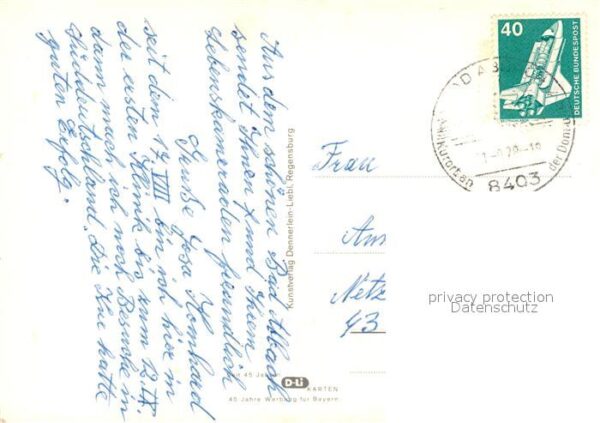 Aus dem schönen Bad Abbach
sendet Ihnen und Ihrem
Lebenskameraden freundlich
Grüße
seit dem 17. VIII bin ich hier in
der ersten Klinik bis zum 12. IX.
dann mach ich noch Besuche in
Süddeutschland. Die Kur hatte
guten Erfolg.
Kunstverlag Dennerlein-Liebl, Regensburg
Seit 45 Jahren
D-Li
KARTEN
45 Jahre Werbung für Bayern
40
DEUTSCHE BUNDESPOST
8403
der Donau
Frau
An
Netz
43
privacy protection
Datenschutz